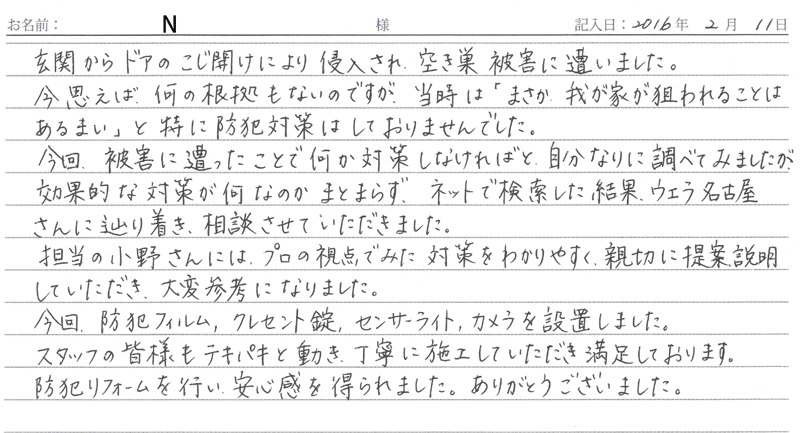 お名前： N 様 記入日：2016年 2月 11日
玄関からドアのこじ開けにより侵入され、空き巣被害に遭いました。
今思えば、何の根拠もないのですが、当時は「まさか、我が家が狙われることは
あるまい」と特に防犯対策はしておりませんでした。
今回、被害に遭ったことで何か対策しなければと、自分なりに調べてみましたが、
効果的な対策が何なのかまとまらず、ネットで検索した結果、ウェラ名古屋
さんに辿り着き、相談させていただきました。
担当の小野さんには、プロの視点でみた対策をわかりやすく、親切に提案、説明
していただき、大変参考になりました。
今回、防犯フィルム，クレセント錠，センサーライト，カメラを設置しました。
スタッフの皆様もテキパキと動き、丁寧に施工していただき満足しております。
防犯リフォームを行い、安心感を得られました。ありがとうございました。